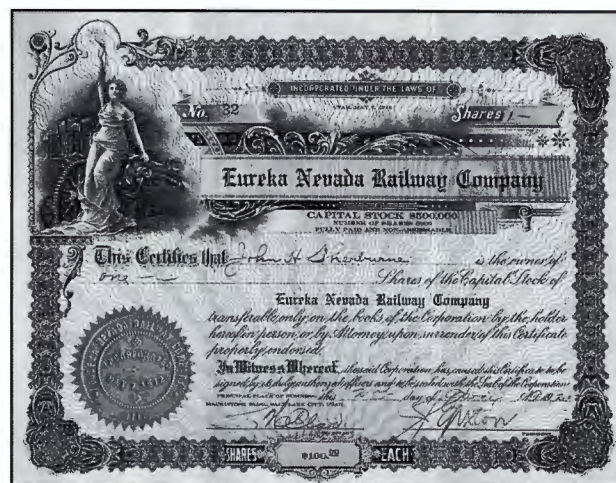 INCORPORATED UNDER THE LAWS OF
No. 32
Shares 1
Eureka Nevada Railway Company
CAPITAL STOCK $500,000
NUMBER OF SHARES 5000
FULLY PAID AND NON-ASSESSABLE
This Certifies that John H
is the owner of
one
Shares of the Capital Stock of
Eureka Nevada Railway Company
transferable only on the books of the Corporation by the holder
hereof in person or by Attorney upon surrender of this Certificate
properly endorsed.
In Witness Whereof, the said Corporation has caused this Certificate to be
signed by its duly authorized officers and to be sealed with the Seal of the Corporation
PRINCIPAL PLACE OF BUSINESS
this
day of
A.D.
SALT LAKE CITY, UTAH
SHARES
$100.00
EACH